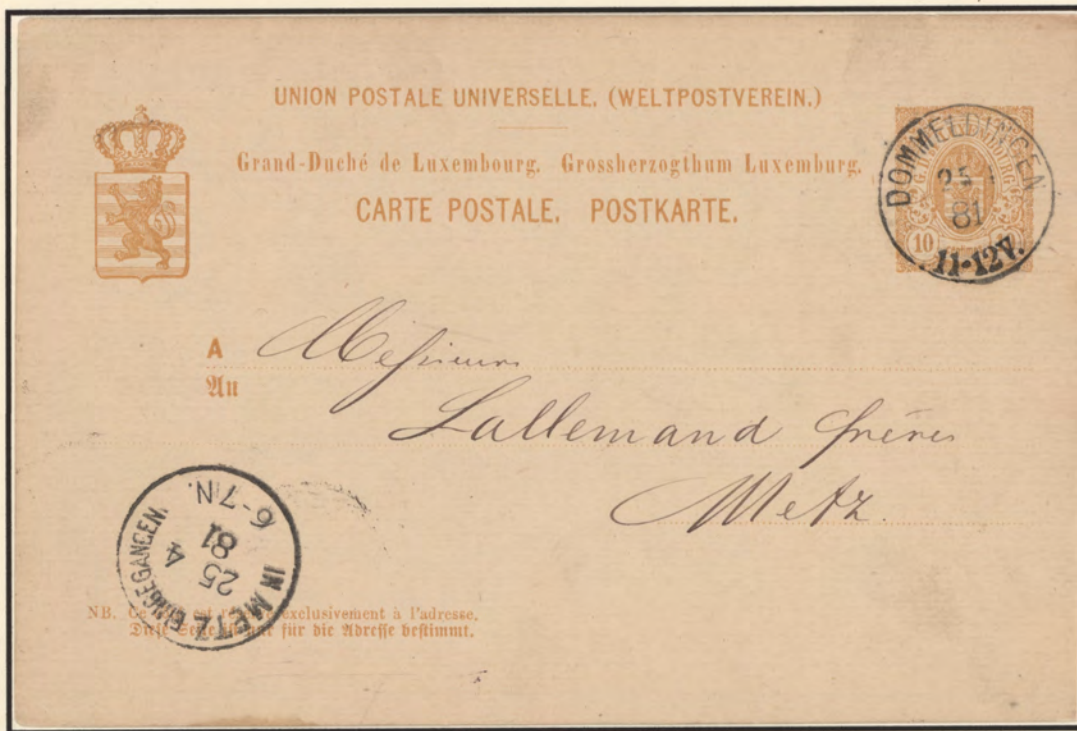 UNION POSTALE UNIVERSELLE. (WELTPOSTVEREIN.)
Grand-Duché de Luxembourg. Grossherzogthum Luxemburg.
CARTE POSTALE. POSTKARTE.
DOMMELDINGEN
25
81
11-12V.
10
A Messieurs
An
Lallemand frères
Metz.
IN METZ EINGEGANGEN.
25
4
81
6-7N.
NB. Ce est exclusivement à l'adresse.
Diese Seite ist nur für die Adresse bestimmt.